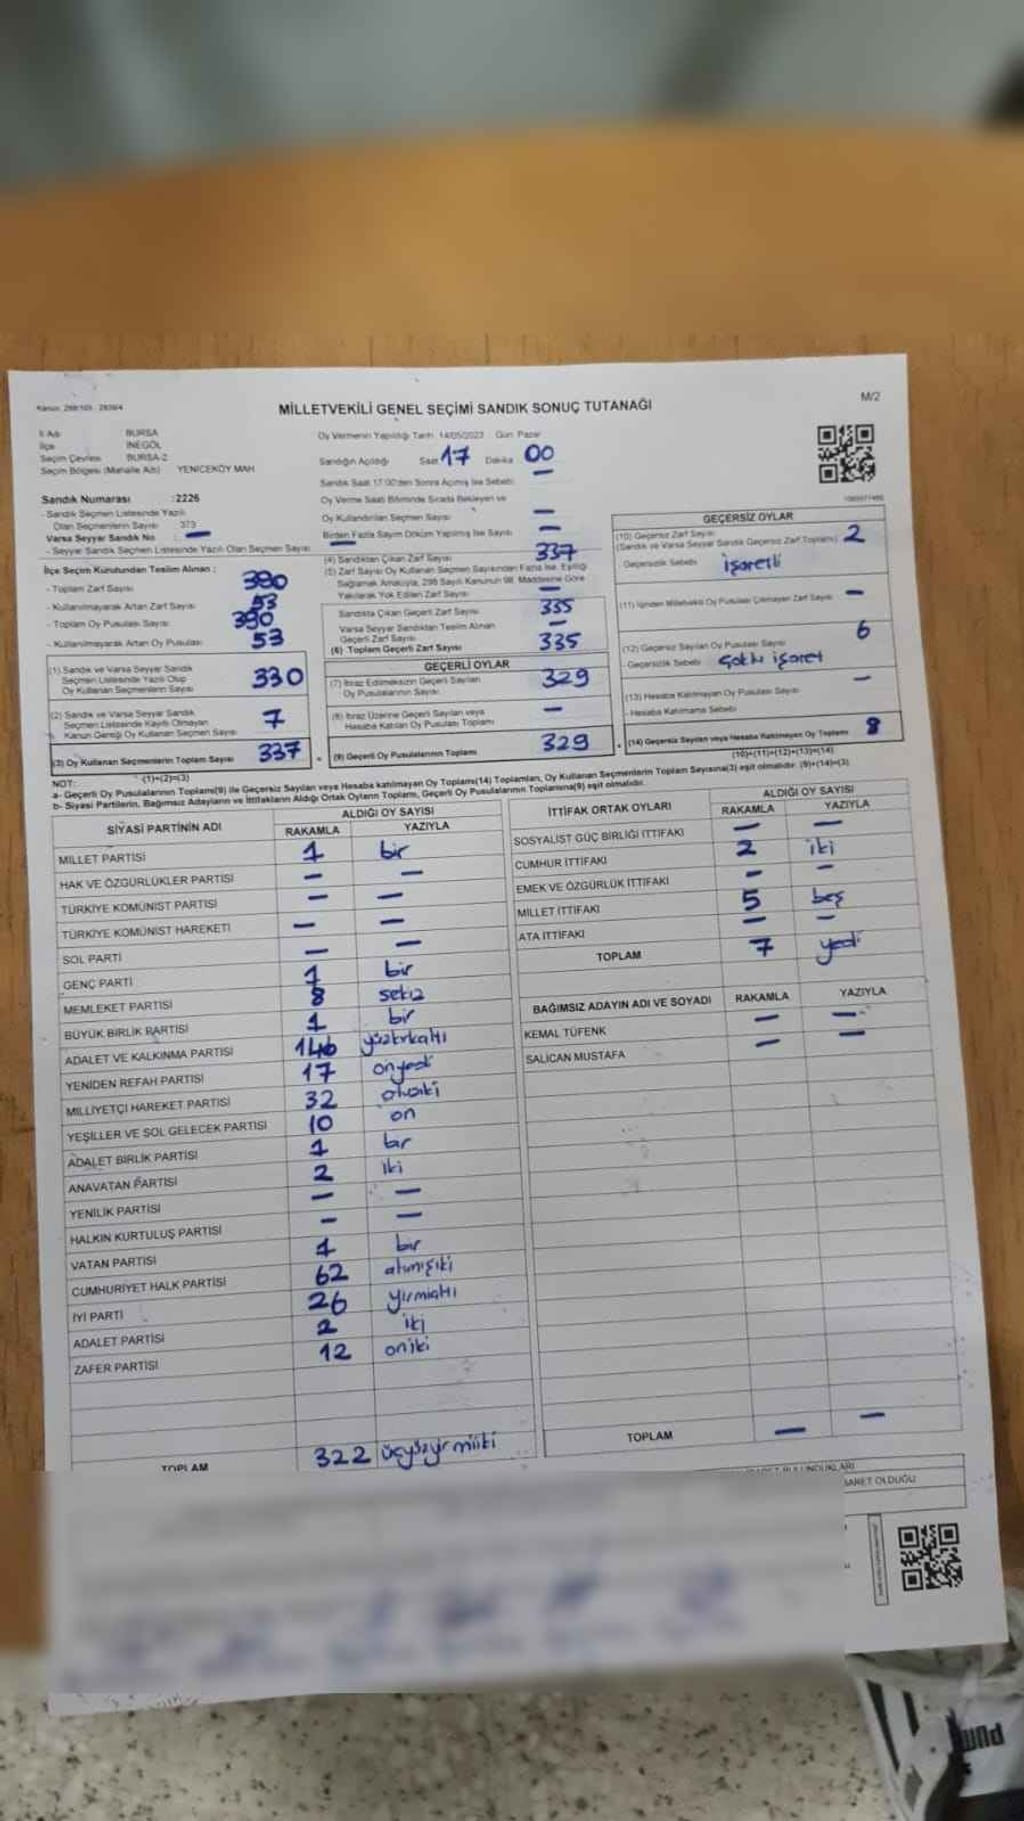 MİLLETVEKİLİ GENEL SEÇİMİ SANDIK SONUÇ TUTANAĞI
M/2
İl Adı BURSA
İlçe İNEGÖL
Seçim Çevresi BURSA-2
Seçim Bölgesi (Mahalle Adı) YENİCEKÖY MAH
Oy Vermenin Yapıldığı Tarih 14/05/2023 Gün Pazar
Sandığın Açıldığı Saat 17 Dakika 00
Sandık Saat 17:00'den Sonra Açılmış İse Sebebi —
Oy Verme Saati Bitiminde Sırada Bekleyen ve
Oy Kullandırılan Seçmen Sayısı —
Birden Fazla Sayım Döküm Yapılmış İse Sayısı —
Sandık Numarası :2226
- Sandık Seçmen Listesinde Yazılı
Olan Seçmenlerin Sayısı 373
Varsa Seyyar Sandık No —
- Seyyar Sandık Seçmen Listesinde Yazılı Olan Seçmen Sayısı
İlçe Seçim Kurulundan Teslim Alınan :
- Toplam Zarf Sayısı 390
- Kullanılmayarak Artan Zarf Sayısı 53
- Toplam Oy Pusulası Sayısı 390
- Kullanılmayarak Artan Oy Pusulası 53
(1) Sandık ve Varsa Seyyar Sandık
Seçmen Listesinde Yazılı Olup
Oy Kullanan Seçmenlerin Sayısı 330
(2) Sandık ve Varsa Seyyar Sandık
Seçmen Listesinde Kayıtlı Olmayan
Kanun Gereği Oy Kullanan Seçmen Sayısı 7
(3) Oy Kullanan Seçmenlerin Toplam Sayısı 337
(1)+(2)=(3)
(4) Sandıktan Çıkan Zarf Sayısı 337
(5) Zarf Sayısı Oy Kullanan Seçmen Sayısından Fazla İse, Eşitliği
Sağlamak Amacıyla, 298 Sayılı Kanunun 98. Maddesine Göre
Yakılarak Yok Edilen Zarf Sayısı —
Sandıkta Çıkan Geçerli Zarf Sayısı 335
Varsa Seyyar Sandıktan Teslim Alınan
Geçerli Zarf Sayısı —
(6) Toplam Geçerli Zarf Sayısı 335
GEÇERLİ OYLAR
(7) İtiraz Edilmeksizin Geçerli Sayılan
Oy Pusulalarının Sayısı 329
(8) İtiraz Üzerine Geçerli Sayılan veya
Hesaba Katılan Oy Pusulası Toplamı —
(9) Geçerli Oy Pusulalarının Toplamı 329
GEÇERSİZ OYLAR
(10) Geçersiz Zarf Sayısı
(Sandık ve Varsa Seyyar Sandık Geçersiz Zarf Toplamı) 2
Geçersizlik Sebebi işaretli
(11) İçinden Milletvekili Oy Pusulası Çıkmayan Zarf Sayısı —
(12) Geçersiz Sayılan Oy Pusulası Sayısı 6
- Geçersizlik Sebebi çoklu işaret
(13) Hesaba Katılmayan Oy Pusulası Sayısı —
- Hesaba Katılmama Sebebi
(14) Geçersiz Sayılan veya Hesaba Katılmayan Oy Toplamı 8
(10)+(11)+(12)+(13)=(14)
NOT:
a- Geçerli Oy Pusulalarının Toplamı(9) ile Geçersiz Sayılan veya Hesaba katılmayan Oy Toplamı(14) Toplamları, Oy Kullanan Seçmenlerin Toplam Sayısına(3) eşit olmalıdır. (9)+(14)=(3)
b- Siyasi Partilerin, Bağımsız Adayların ve İttifakların Aldığı Ortak Oyların Toplamı, Geçerli Oy Pusulalarının Toplamına(9) eşit olmalıdır.
SİYASİ PARTİNİN ADI ALDIĞI OY SAYISI
RAKAMLA YAZIYLA
MİLLET PARTİSİ 1 bir
HAK VE ÖZGÜRLÜKLER PARTİSİ — —
TÜRKİYE KOMÜNİST PARTİSİ — —
TÜRKİYE KOMÜNİST HAREKETİ — —
SOL PARTİ — —
GENÇ PARTİ 1 bir
MEMLEKET PARTİSİ 8 sekiz
BÜYÜK BİRLİK PARTİSİ 1 bir
ADALET VE KALKINMA PARTİSİ 146 yüzkırkaltı
YENİDEN REFAH PARTİSİ 17 onyedi
MİLLİYETÇİ HAREKET PARTİSİ 32 otuziki
YEŞİLLER VE SOL GELECEK PARTİSİ 10 on
ADALET BİRLİK PARTİSİ 1 bir
ANAVATAN PARTİSİ 2 iki
YENİLİK PARTİSİ — —
HALKIN KURTULUŞ PARTİSİ — —
VATAN PARTİSİ 1 bir
CUMHURİYET HALK PARTİSİ 62 altmışiki
İYİ PARTİ 26 yirmialtı
ADALET PARTİSİ 2 iki
ZAFER PARTİSİ 12 oniki
TOPLAM 322 üçyüzyirmiiki
İTTİFAK ORTAK OYLARI ALDIĞI OY SAYISI
RAKAMLA YAZIYLA
SOSYALİST GÜÇ BİRLİĞİ İTTİFAKI — —
CUMHUR İTTİFAKI 2 iki
EMEK VE ÖZGÜRLÜK İTTİFAKI — —
MİLLET İTTİFAKI 5 beş
ATA İTTİFAKI — —
TOPLAM 7 yedi
BAĞIMSIZ ADAYIN ADI VE SOYADI RAKAMLA YAZIYLA
KEMAL TÜFENK — —
SALİCAN MUSTAFA — —
TOPLAM — —
OLDUĞU
PUMA